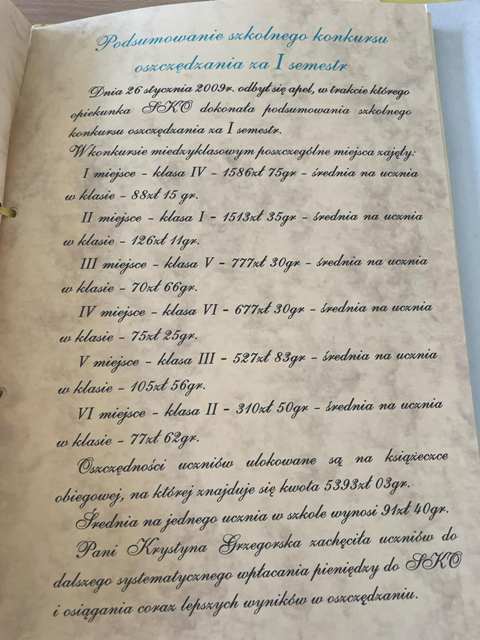 Podsumowanie szkolnego konkursu
oszczędzania za I semestr
Dnia 26 stycznia 2009r. odbył się apel, w trakcie którego
opiekunka SKO dokonała podsumowania szkolnego
konkursu oszczędzania za I semestr.
W konkursie międzyklasowym poszczególne miejsca zajęły:
I miejsce - klasa IV - 1586zł 75gr - średnia na ucznia
w klasie - 88zł 15 gr.
II miejsce - klasa I - 1513zł 35gr - średnia na ucznia
w klasie - 126zł 11gr.
III miejsce - klasa V - 777zł 30gr - średnia na ucznia
w klasie - 70zł 66gr.
IV miejsce - klasa VI - 677zł 30gr - średnia na ucznia
w klasie - 75zł 25gr.
V miejsce - klasa III - 527zł 83gr - średnia na ucznia
w klasie - 105zł 56gr.
VI miejsce - klasa II - 310zł 50gr - średnia na ucznia
w klasie - 77zł 62gr.
Oszczędności uczniów ulokowane są na książeczce
obiegowej, na której znajduje się kwota 5393zł 03gr.
Średnia na jednego ucznia w szkole wynosi 91zł 40gr.
Pani Krystyna Grzegorska zachęciła uczniów do
dalszego systematycznego wpłacania pieniędzy do SKO
i osiągania coraz lepszych wyników w oszczędzaniu.